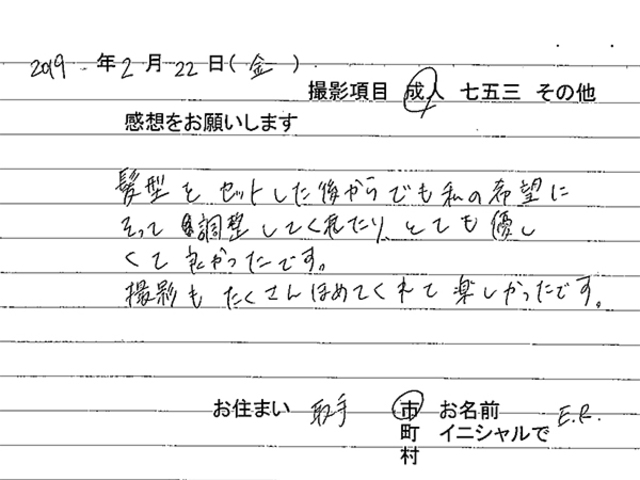 2019 年 2 月 22 日( 金 )
撮影項目 成人 七五三 その他
感想をお願いします
髪型をセットした後からでも私の希望に
そって調整してくれたり、とても優し
くて良かったです。
撮影もたくさんほめてくれて楽しかったです。
お住まい 取手 市 お名前 E.R.
町 イニシャルで
村